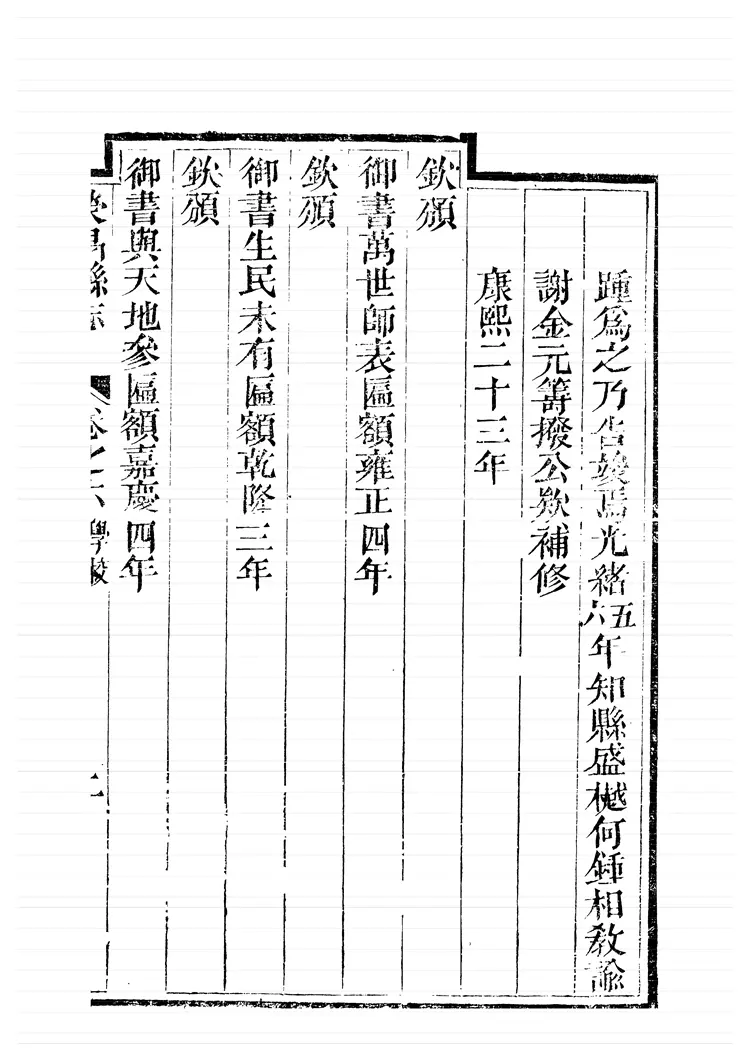 踵爲之乃告竣焉光緒五六年知縣盛樾何鍾相敎諭
謝金元籌撥公欵補修
康熙二十三年
欽頒
御書萬世師表匾額雍正四年
欽頒
御書生民未有匾額乾隆三年
欽頒
御書與天地參匾額嘉慶四年
榮昌縣志 卷之六 學校